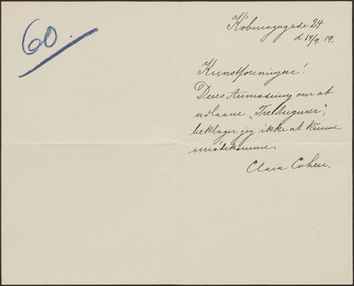 60.
Købmagergade 24
d. 14/9 19.
Kunstforeningen!
Deres Anmodning om at
udlaane
beklager jeg ikke at kunne
imødekomme.
Clara Cohen.